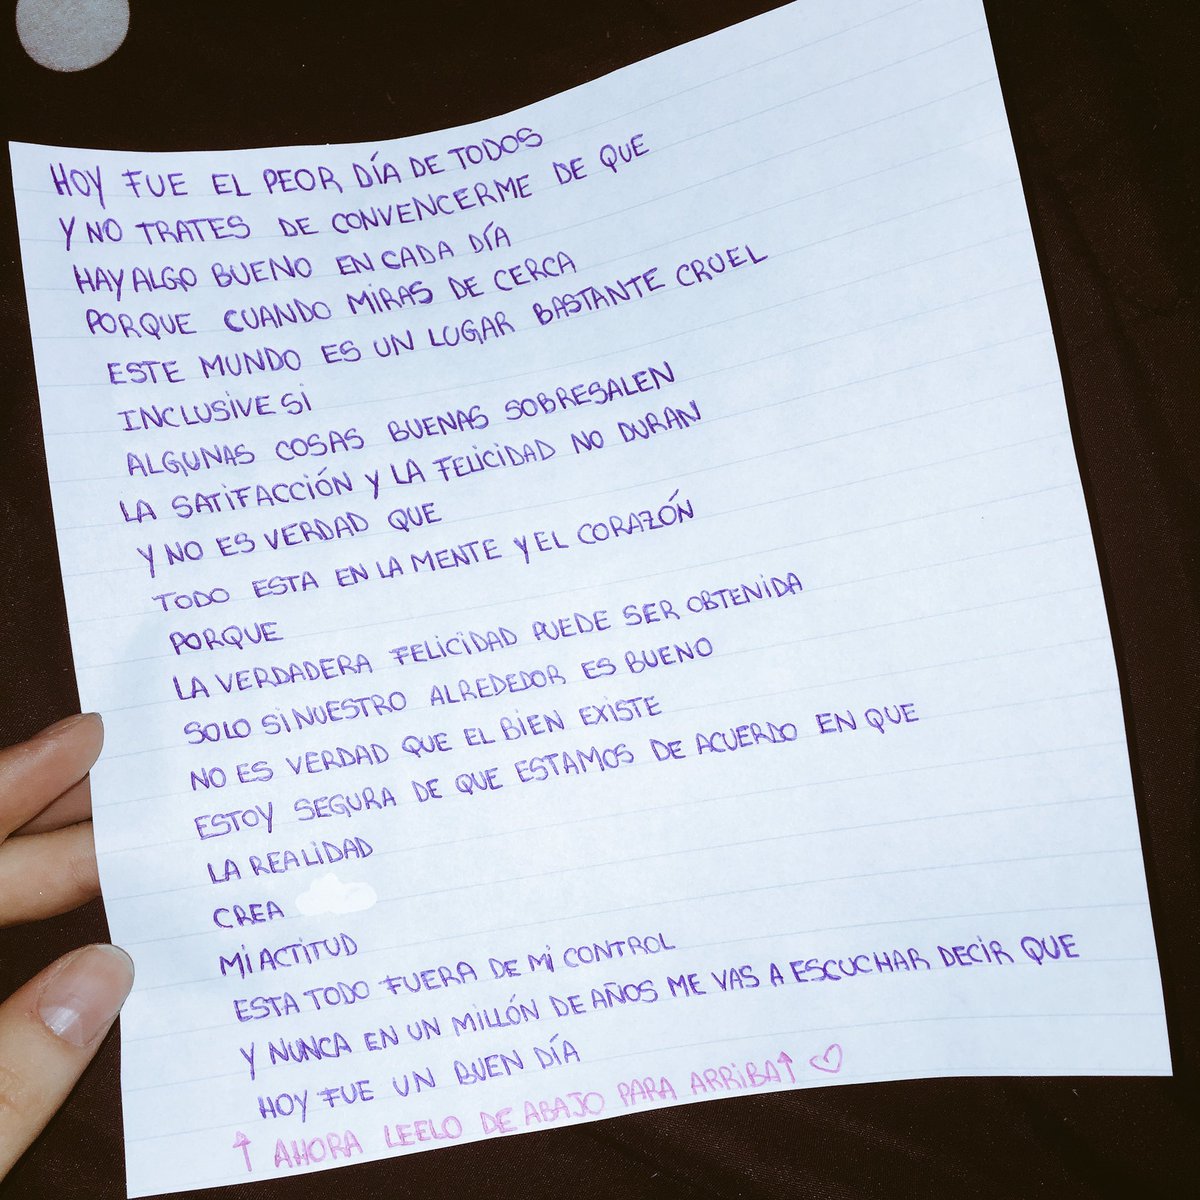 HOY FUE EL PEOR DÍA DE TODOS
Y NO TRATES DE CONVENCERME DE QUE
HAY ALGO BUENO EN CADA DÍA
PORQUE CUANDO MIRAS DE CERCA
ESTE MUNDO ES UN LUGAR BASTANTE CRUEL
INCLUSIVE SI
ALGUNAS COSAS BUENAS SOBRESALEN
LA SATIFACCIÓN Y LA FELICIDAD NO DURAN
Y NO ES VERDAD QUE
TODO ESTA EN LA MENTE Y EL CORAZÓN
PORQUE
LA VERDADERA FELICIDAD PUEDE SER OBTENIDA
SOLO SI NUESTRO ALREDEDOR ES BUENO
NO ES VERDAD QUE EL BIEN EXISTE
ESTOY SEGURA DE QUE ESTAMOS DE ACUERDO EN QUE
LA REALIDAD
CREA
MI ACTITUD
ESTA TODO FUERA DE MI CONTROL
Y NUNCA EN UN MILLÓN DE AÑOS ME VAS A ESCUCHAR DECIR QUE
HOY FUE UN BUEN DÍA
↑ AHORA LEELO DE ABAJO PARA ARRIBA ↑ ♡